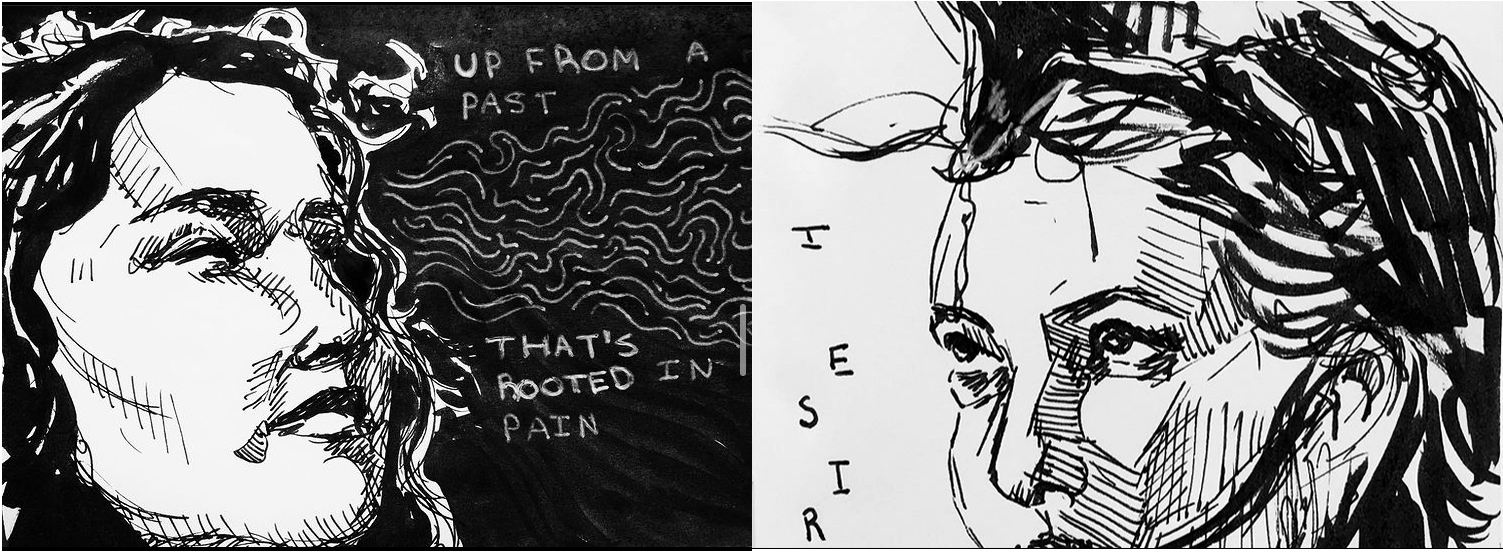 UP FROM A
PAST
THAT'S
ROOTED IN
PAIN
I
RISE